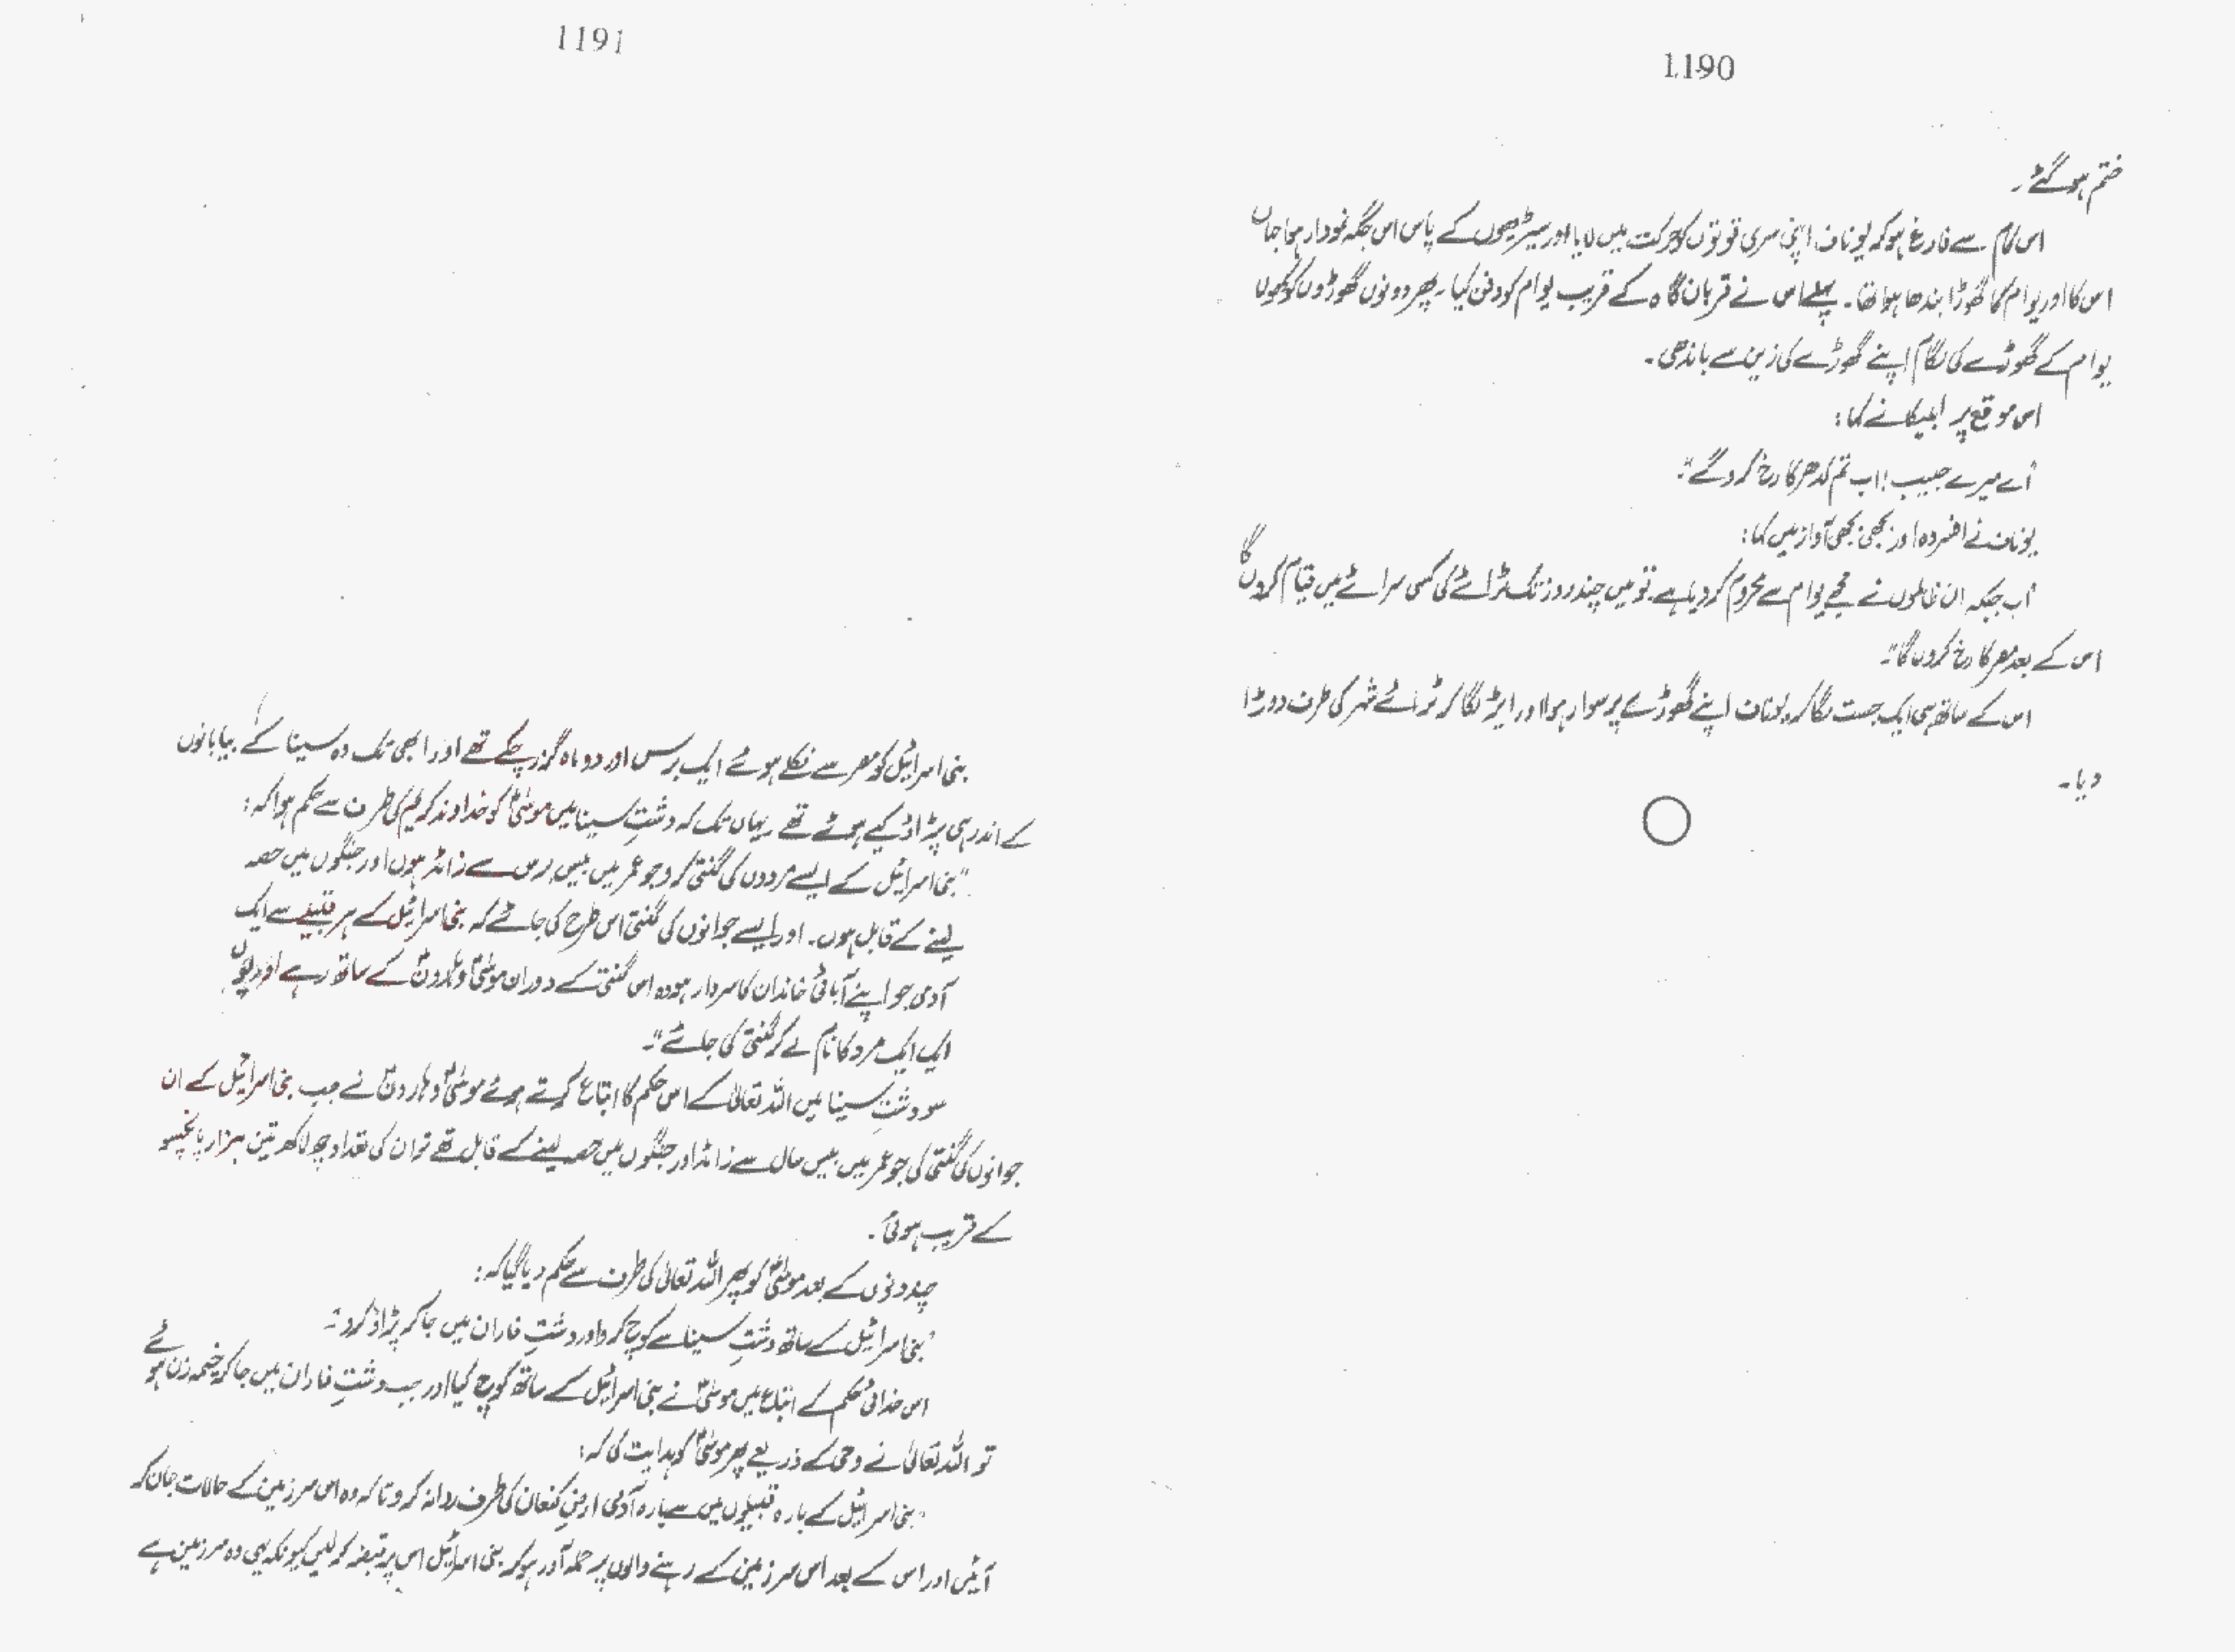 1190
ختم ہو گئے۔
اس کام سے فارغ ہو کر یوناف اپنی سری قوتوں کو حرکت میں لایا اور سیڑھیوں کے پاس اس جگہ نمودار ہوا جہاں
اس کا اور یوام کا گھوڑا بندھا ہوا تھا۔ پہلے اس نے قربان گاہ کے قریب یوام کو دفن کیا۔ پھر دونوں گھوڑوں کو کھولا
یوام کے گھوڑے کی لگام اپنے گھوڑے کی زین سے باندھی۔
اس موقع پر ابلیکا نے کہا:
"اے میرے حبیب! اب تم کدھر کا رخ کرو گے"۔
یوناف نے افسردہ اور بجھی بجھی آواز میں کہا:
"اب جبکہ ان ظالموں نے مجھے یوام سے محروم کر دیا ہے۔ تو میں چند روز تک ٹرائے کی کسی سرائے میں قیام کروں گا
اس کے بعد مصر کا رخ کروں گا"۔
اس کے ساتھ ہی ایک جست لگا کر یوناف اپنے گھوڑے پر سوار ہوا اور ایڑ لگا کر ٹرائے شہر کی طرف دوڑا
دیا۔
1191
بنی اسرائیل کو مصر سے نکلے ہوئے ایک برس اور دو ماہ گزر چکے تھے اور ابھی تک وہ سینا کے بیابانوں
کے اندر ہی پڑاؤ کیے ہوئے تھے یہاں تک کہ دشتِ سینا میں موسیٰؑ کو خداوند کریم کی طرف سے حکم ہوا کہ:
"بنی اسرائیل کے ایسے مردوں کی گنتی کرو جو عمر میں بیس برس سے زائد ہوں اور جنگوں میں حصہ
لینے کے قابل ہوں۔ اور ایسے جوانوں کی گنتی اس طرح کی جائے کہ بنی اسرائیل کے ہر قبیلے سے ایک
آدمی جو اپنے آبائی خاندان کا سردار ہو وہ اس گنتی کے دوران موسیٰؑ و ہارونؑ کے ساتھ رہے اور یوں
ایک ایک مرد کا نام لے کر گنتی کی جائے"۔
سو دشتِ سینا میں اللہ تعالیٰ کے اس حکم کا اتباع کرتے ہوئے موسیٰؑ و ہارونؑ نے جب بنی اسرائیل کے ان
جوانوں کی گنتی کی جو عمر میں بیس سال سے زائد اور جنگوں میں حصہ لینے کے قابل تھے تو ان کی تعداد چھ لاکھ تین ہزار پانچسو
کے قریب ہوئی۔
چند دنوں کے بعد موسیٰؑ کو پھر اللہ تعالیٰ کی طرف سے حکم دیا گیا کہ:
"بنی اسرائیل کے ساتھ دشتِ سینا سے کوچ کرو اور دشتِ فاران میں جا کر پڑاؤ کرو"۔
اس خدائی حکم کے اتباع میں موسیٰؑ نے بنی اسرائیل کے ساتھ کوچ کیا اور جب دشتِ فاران میں جا کر خیمہ زن ہوئے
تو اللہ تعالیٰ نے وحی کے ذریعے پھر موسیٰؑ کو ہدایت کی کہ:
"بنی اسرائیل کے بارہ قبیلوں میں سے بارہ آدمی ارضِ کنعان کی طرف روانہ کرو تاکہ وہ اس سرزمین کے حالات جان کر
آئیں اور اس کے بعد اس سرزمین کے رہنے والوں پر حملہ آور ہو کر بنی اسرائیل اس پر قبضہ کر لیں کیونکہ یہی وہ سرزمین ہے